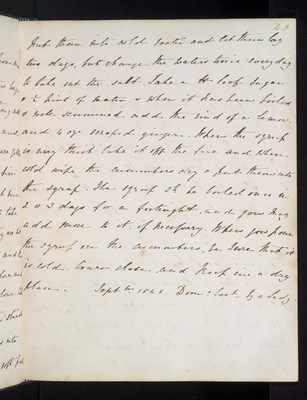 43
Put them into cold water and let them lay
two days, but change the water twice every day
to take out the salt. Take a lb loaf sugar
½ pint of water & when it has been boiled
& well scummed add the rind of a lemon,
and 4 oz scraped ginger. When the syrup
is very thick take it off the fire and when
cold wipe the cucumbers dry & put them into
the syrup. The syrup sh be boiled once in
2 or 3 days for a fortnight, and you may
add more to it if necessary. When you pour
the syrup on the cucumbers, be sure that it
is cold. Cover close and keep in a dry
place. Sept Dom: Cook by a Lady